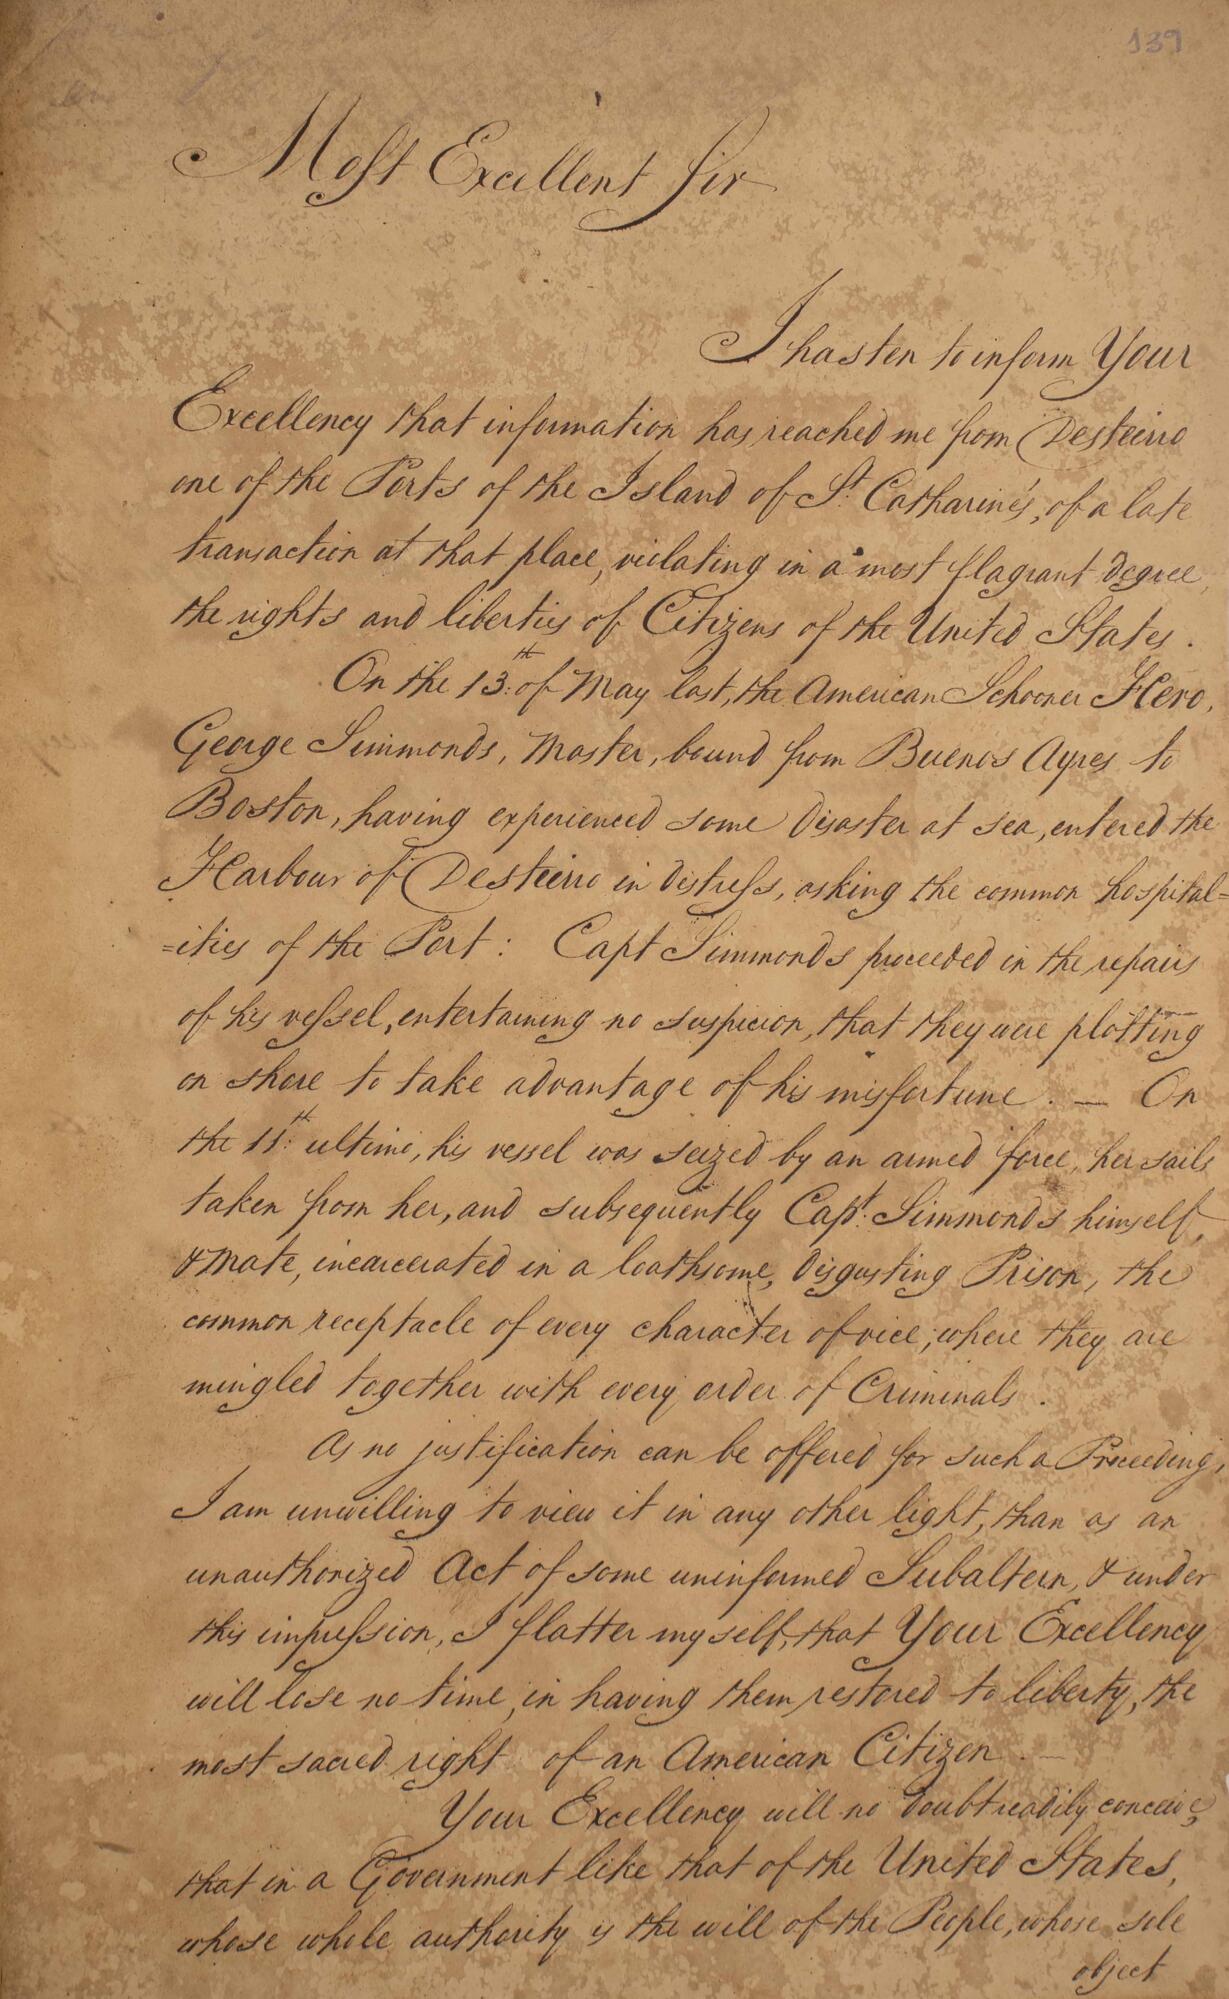 139
Most Excellent Sir
I hasten to inform Your
Excellency that information has reached me from Desteirro
one of the Ports of the Island of St. Catharine's, of a late
transaction at that place, violating in a most flagrant degree,
the rights and liberties of Citizens of the United States.
On the 13th: of May last, the American Schooner Hero,
George Simmonds, Master, bound from Buenos Ayres to
Boston, having experienced some disaster at sea, entered the
Harbour of Desteirro in distress, asking the common hospital=
=ities of the Port: Capt Simmonds proceeded in the repairs
of his vessel, entertaining no suspicion, that they were plotting
on shore to take advantage of his misfortune. — On
the 11th: ultimo, his vessel was seized by an armed force, her sails
taken from her, and subsequently Capt: Simmonds himself,
& Mate, incarcerated in a loathsome, disgusting Prison, the
common receptacle of every character of vice, where they are
mingled together with every order of Criminals.
As no justification can be offered for such a Proceeding,
I am unwilling to view it in any other light, than as an
unauthorized Act of some uninformed Subaltern, & under
this impression, I flatter myself, that Your Excellency
will lose no time, in having them restored to liberty, the
most sacred right of an American Citizen. —
Your Excellency will no doubt readily conceive,
that in a Government like that of the United States,
whose whole authority is the will of the People, whose sole
object